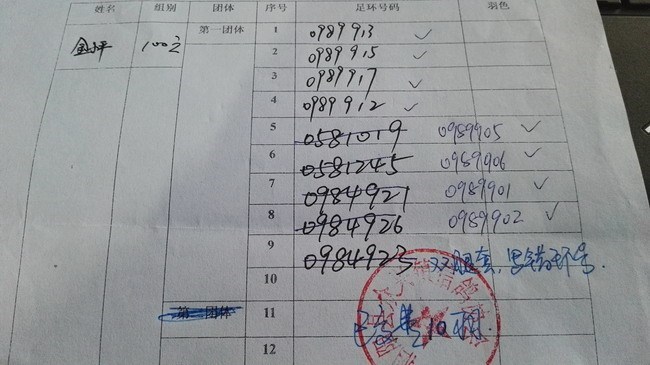 姓名 组别 团体 序号 足环号码 羽色
金坪 100主 第一团体 1 0989913 ✓
2 0989915 ✓
3 0989917 ✓
4 0989912 ✓
5 0581019 0989905 ✓
6 0581245 0989906 ✓
7 0984921 0989901 ✓
8 0984926 0989902 ✓
9 0984923
10
第一团体 11
12